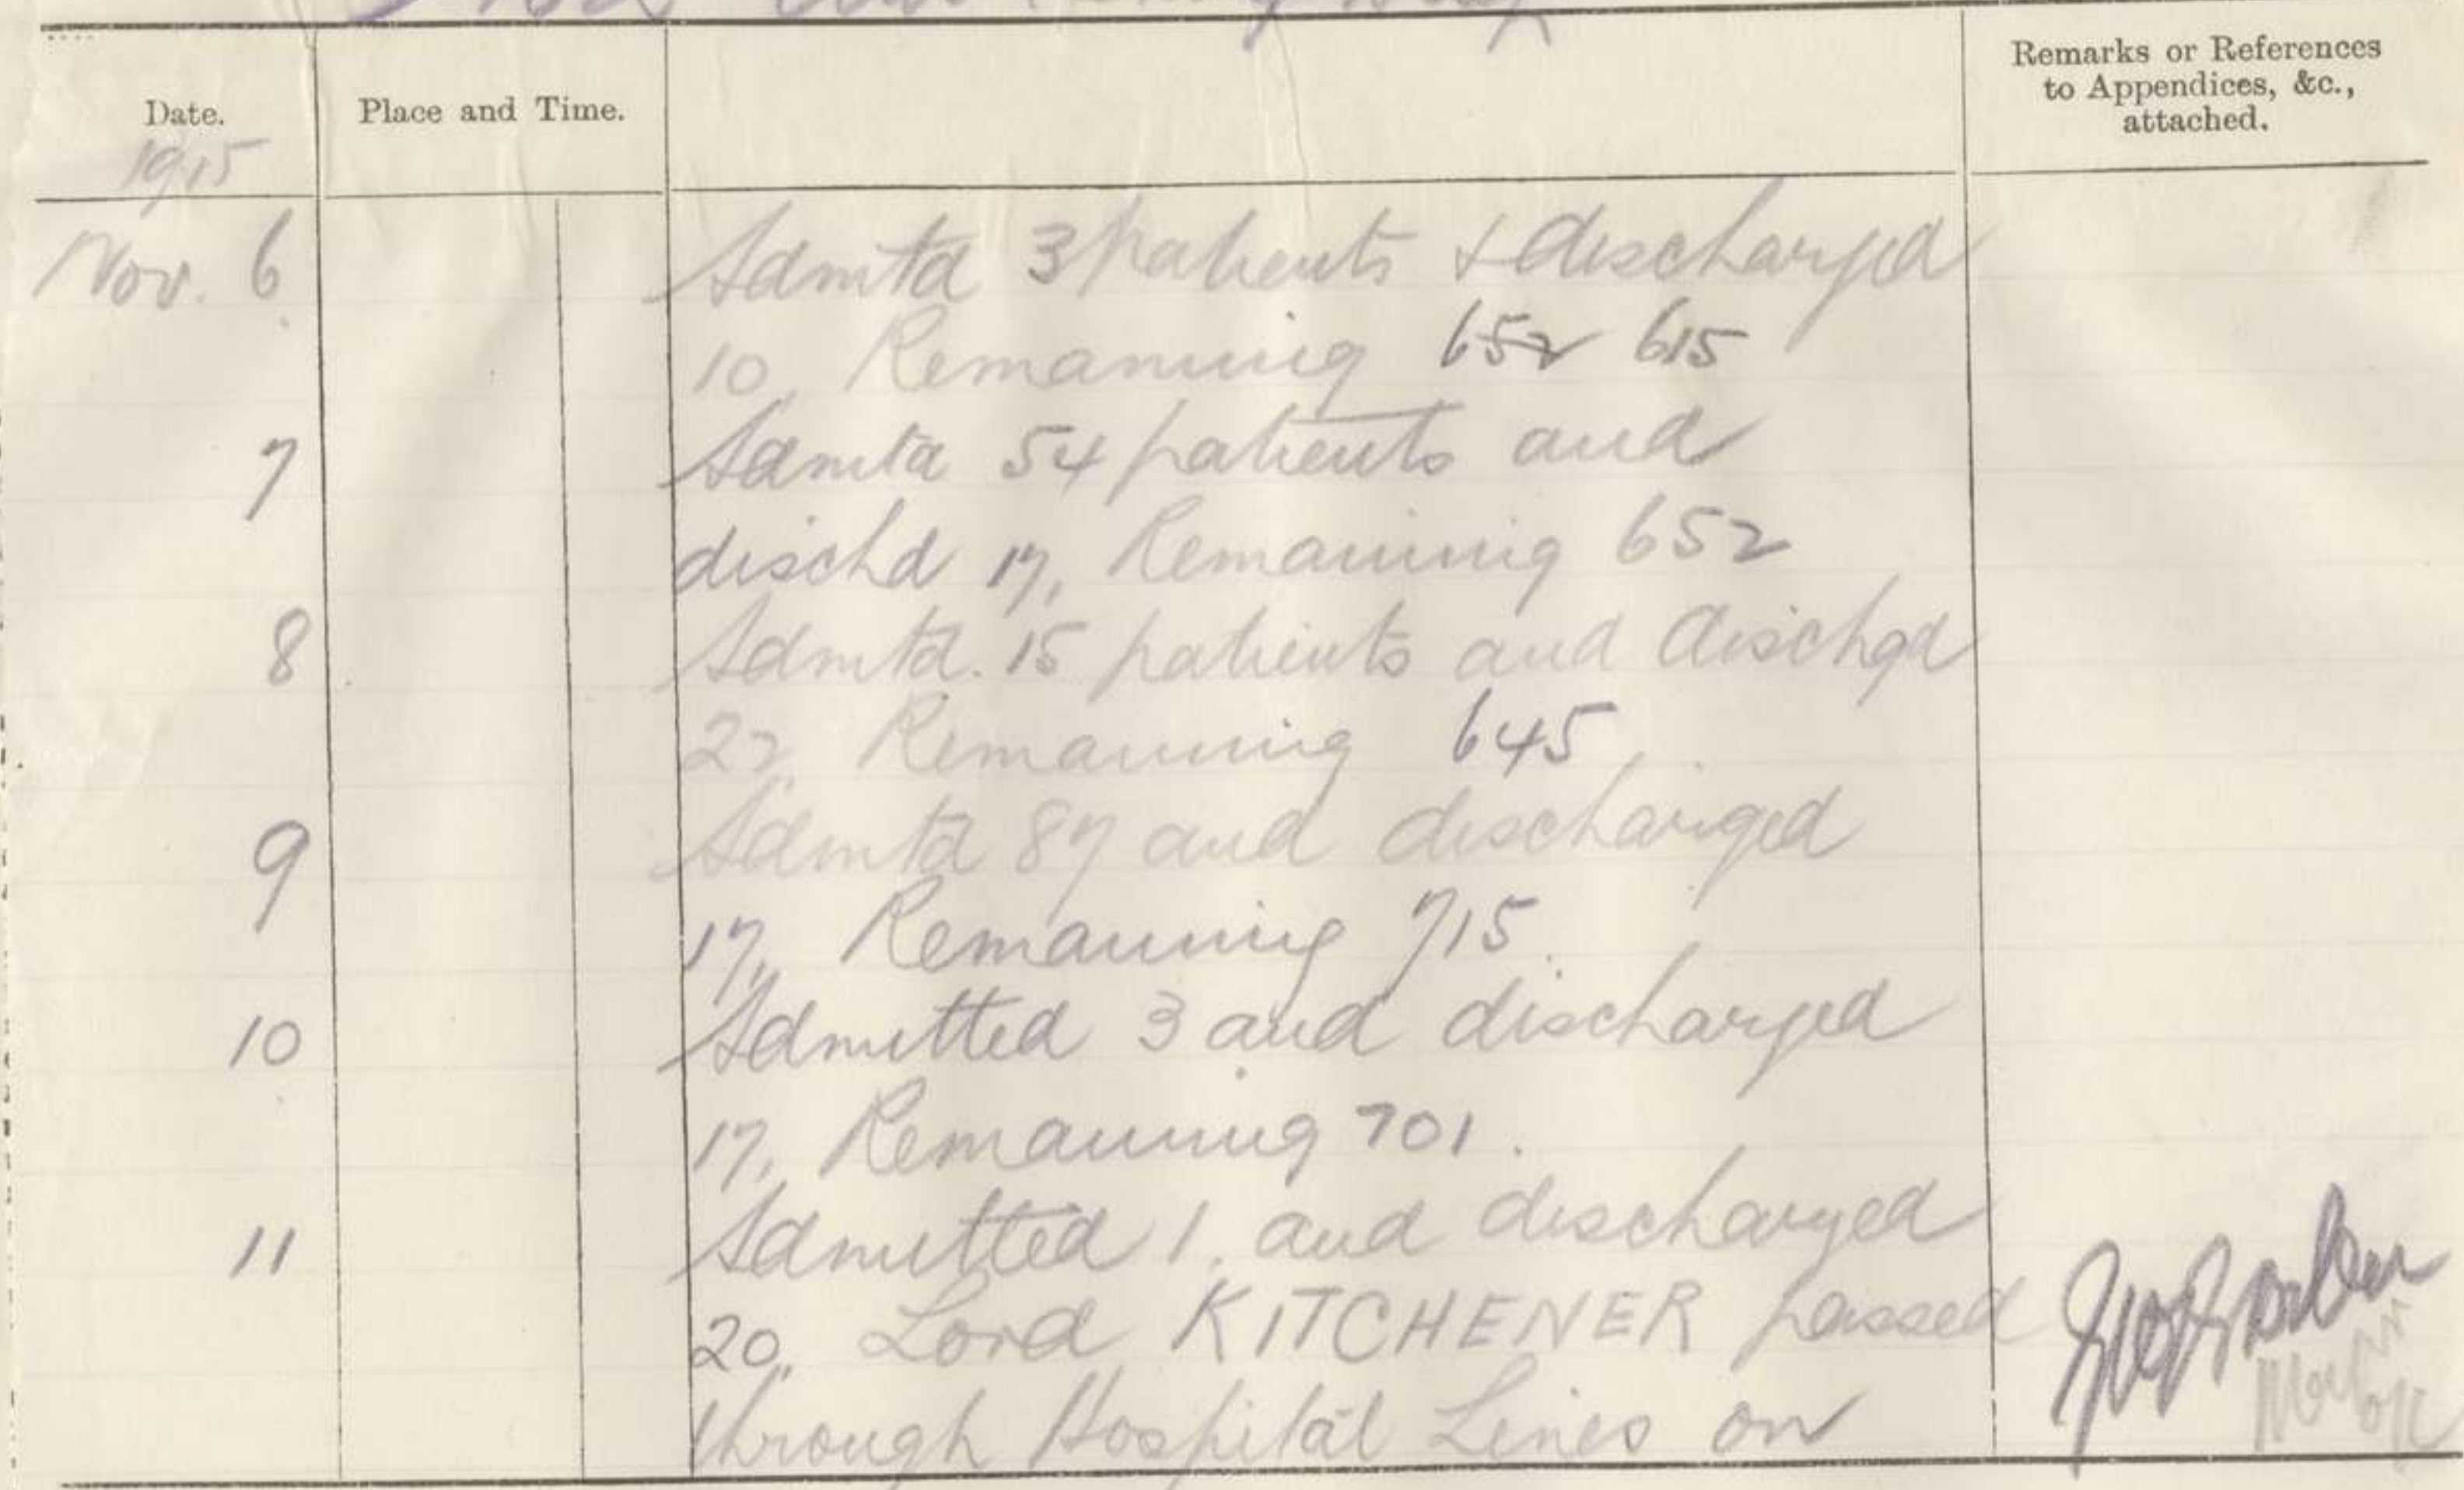 Date.
Place and Time.
Remarks or References
to Appendices, &c.,
attached.
1915
Nov. 6 Admtd 3 patients & discharged
10, Remaining 652 615
7 Admtd 54 patients and
dischd 17, Remaining 652
8 Admtd. 15 patients and dischgd
22, Remaining 645
9 Admtd 87 and discharged
17, Remaining 715.
10 Admitted 3 and discharged
17, Remaining 701.
11 Admitted 1, and discharged
20, Lord KITCHENER passed
through Hospital Lines on